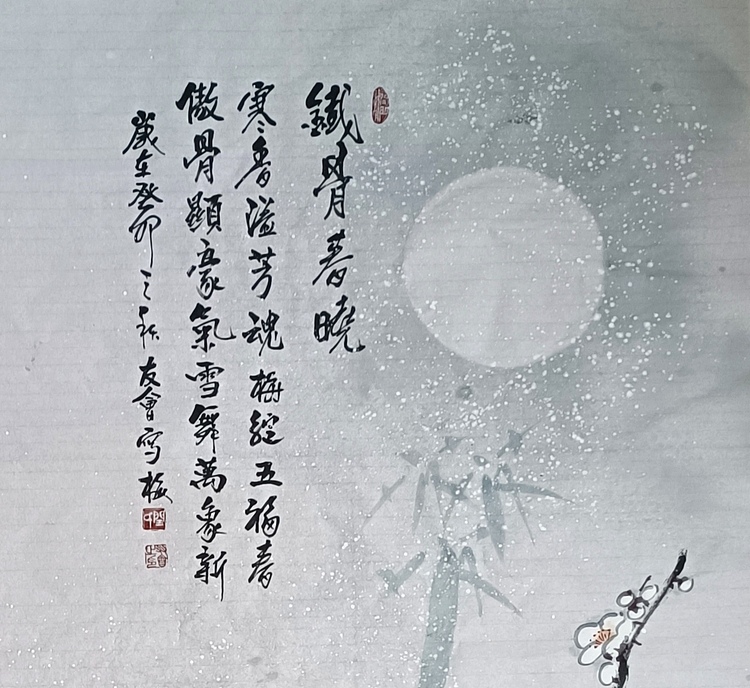 鐵骨春曉
寒香溢芳魂梅綻五福春
傲骨顯豪氣雪舞萬象新
歲在癸卯之秋友會寫梅